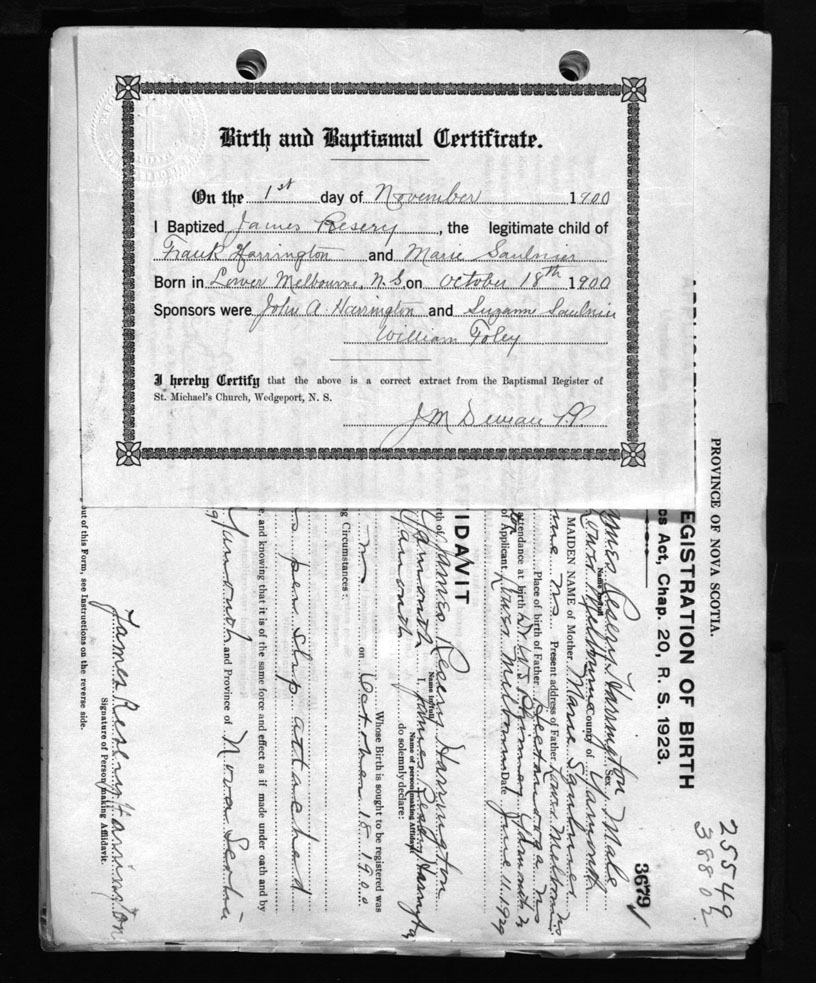 Birth and Baptismal Certificate.
On the 1st day of November 1900
I Baptized James Resery, the legitimate child of
Frank Harrington and Marie Saulnier
Born in Lower Melbourne, N.S. on October 18th 1900
Sponsors were John A. Harrington and Suzanne Saulnier
William Foley
I hereby Certify that the above is a correct extract from the Baptismal Register of
St. Michael's Church, Wedgeport, N. S.
J M
PROVINCE OF NOVA SCOTIA.
EGISTRATION OF BIRTH
cs Act, Chap. 20, R. S. 1923.
25549
3880
3679
ames Resery Harrington Sex Male
Name in full
Lower Melbourne County of Yarmouth
MAIDEN NAME of Mother Marie Saulnier
Present address of Father Lower Melbourne
Place of birth of Father
attendance at birth Yarmouth
of Applicant Lower Melbourne Date June 11. 1929
IDAVIT
th of James Resery Harrington
Name in full
Yarmouth I, James Resery Harrington
Name of person making Affidavit
Yarmouth do solemnly declare:
Whose Birth is sought to be registered was
on October 18 1900
g Circumstances:
per slip attached
e, and knowing that it is of the same force and effect as if made under oath and by
Yarmouth and Province of Nova Scotia
James Resery Harrington
Signature of Person making Affidavit.
out of this Form, see Instructions on the reverse side.